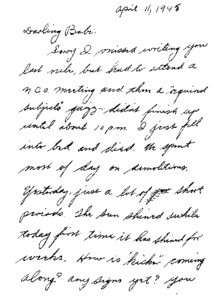 april 11, 1945
Darling Babe:
Sorry I missed writing you
last nite, but had to attend a
n c o. meeting and then a "required
subjects" quizz - didn't finish up
until about 10 pm I just fell
into bed and died. We spent
most of day on demolitions.
Yesterday just a lot of short
periods. The sun shined while
today first time it has shined for
weeks. How is "kickin" coming
along? any signs yet? you